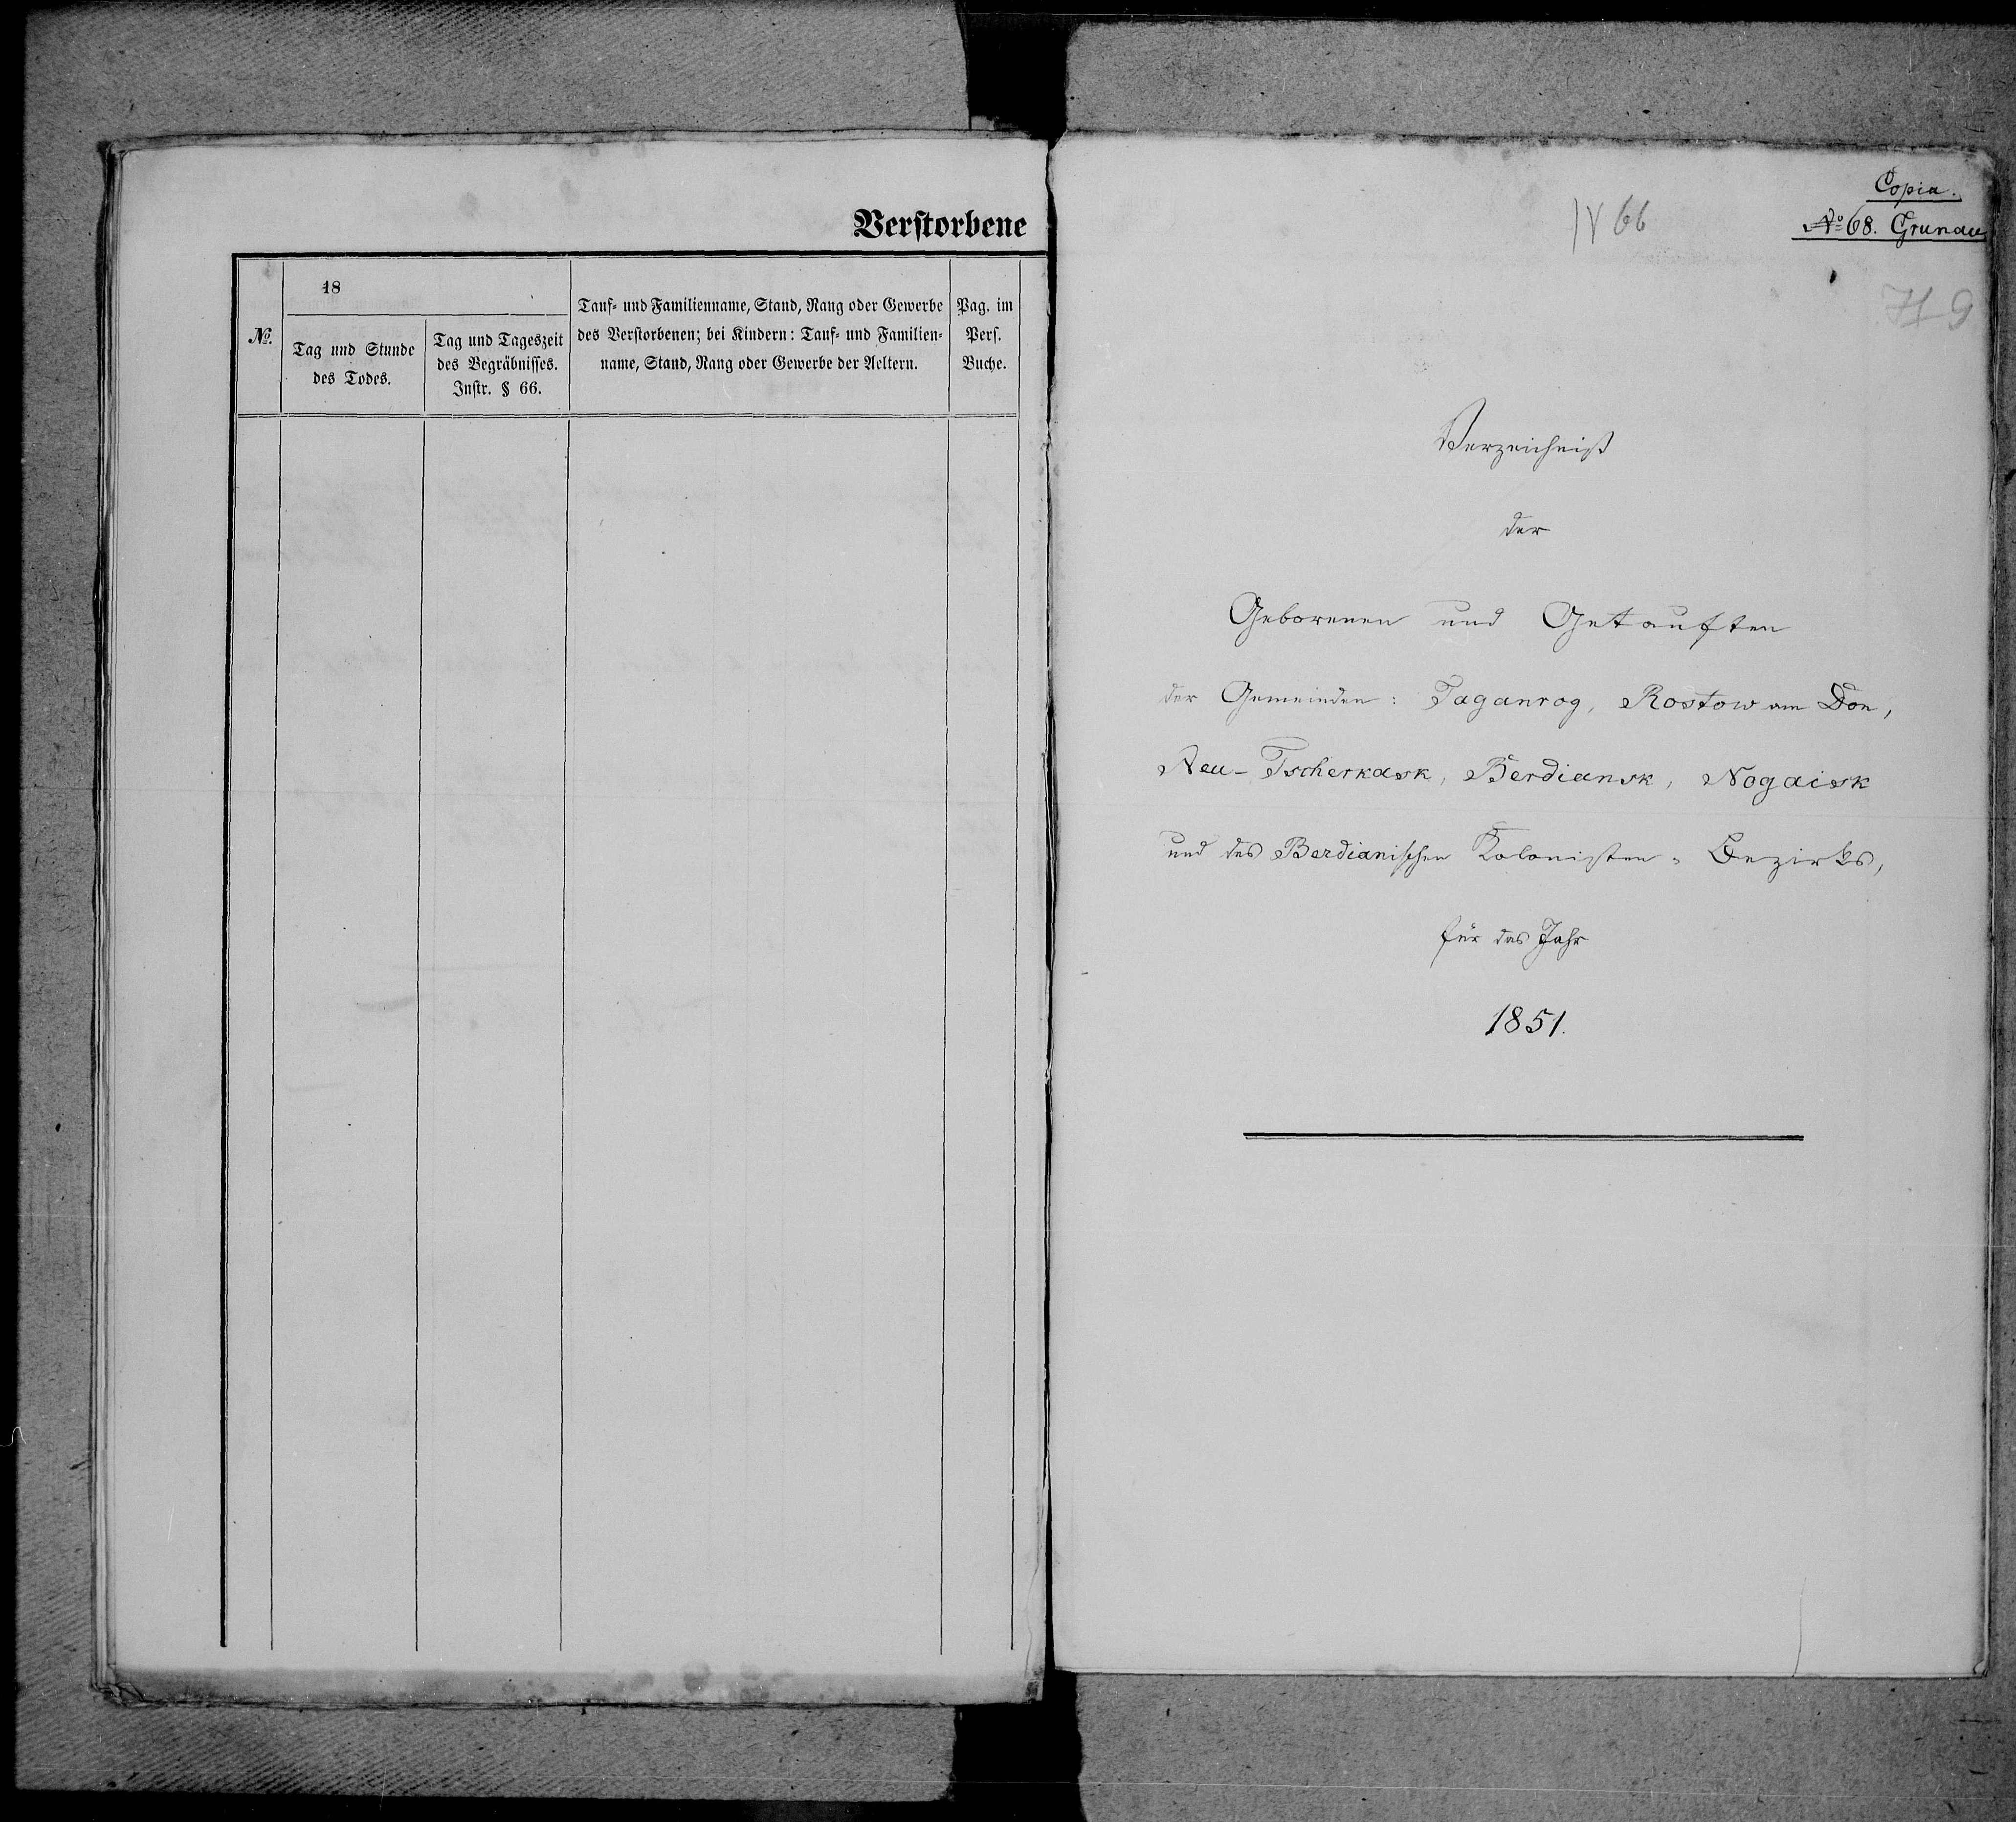 Verstorbene
No.
18
Tag und Stunde
des Todes.
Tag und Tageszeit
des Begräbnisses.
Instr. § 66.
Tauf- und Familienname, Stand, Rang oder Gewerbe
des Verstorbenen; bei Kindern: Tauf- und Familien-
name, Stand, Rang oder Gewerbe der Aeltern.
Pag. im
Pers.
Buche.
Copia.
No 68. Grunau
66
Verzeichniß
der
Geborenen und Getauften
der Gemeinden: Taganrog, Rostow am Don,
Neu-Tscherkask, Berdiansk, Nogaisk
und des Berdianischen Kolonisten-Bezirks,
für das Jahr
1851.